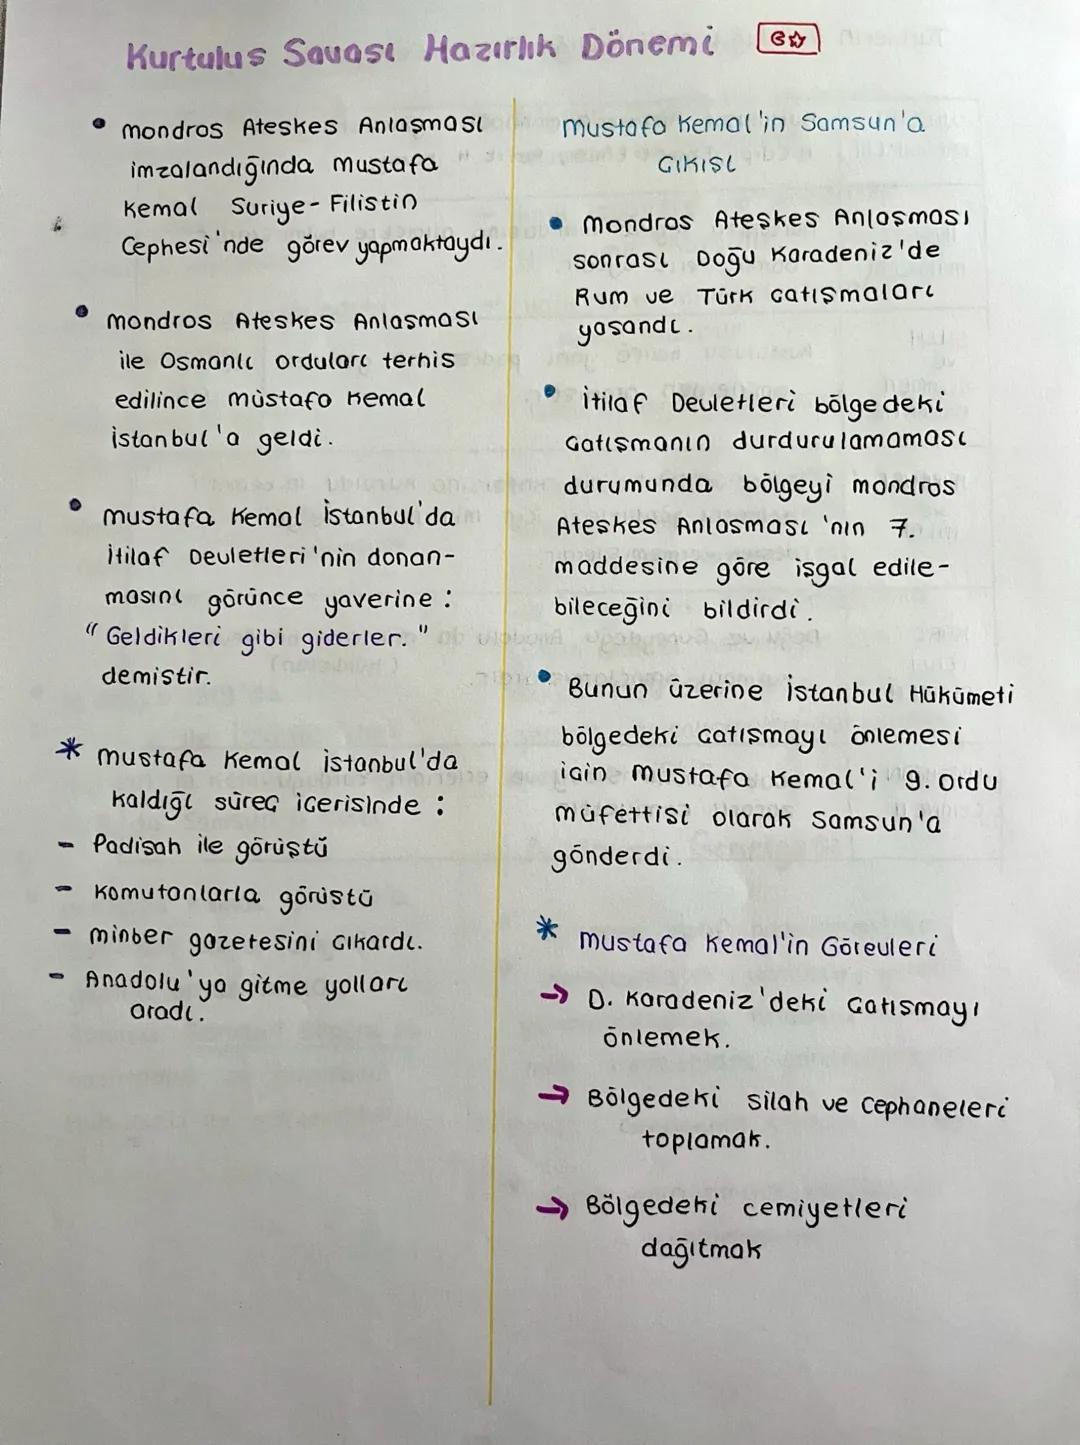 Kurtulus Savası Hazırlık Dönemi
mondros Ateskes Anlaşması
imzalandığında mustafa
Kemal Suriye-Filistin
Cephesi'nde görev yapmaktaydı.
mondros Ateskes Anlasması
ile Osmanlı orduları terhis
edilince mustafa Kemal
istanbul'a geldi.
mustafa Kemal İstanbul'da
İtilaf Devletleri'nin donan-
masını görünce yaverine:
"Geldikleri gibi giderler."
demistir.
* mustafa Kemal istanbul'da
kaldığı süreç icerisinde:
- Padisah ile görüştü
- Komutanlarla görüstü
- minber gazetesini Cıkardı.
- Anadolu'ya gitme yolları
aradı.
mustafa Kemal'in Samsun'a
Cıkısı
mondros Ateşkes Anlaşması
sonrası Doğu Karadeniz'de
Rum ve Türk Catışmaları
yasandı.
İtilaf Devletleri bölgedeki
Catısmanın durdurulamaması
durumunda bölgeyi mondros
Ateskes Anlasması'nın 7.
maddesine göre işgal edile-
bileceğini bildirdi.
Bunun üzerine İstanbul Hükümeti
bölgedeki Catısmayı önlemesi
icin mustafa Kemal'i 9. ordu
müfettisi olarak Samsun'a
gönderdi.
* mustafa Kemal'in Görevleri
→ D. Karadeniz'deki Catısmayı
önlemek.
→ Bölgedeki silah ve Cephaneleri
toplamak.
→ Bölgedeki cemiyetleri
dağıtmak